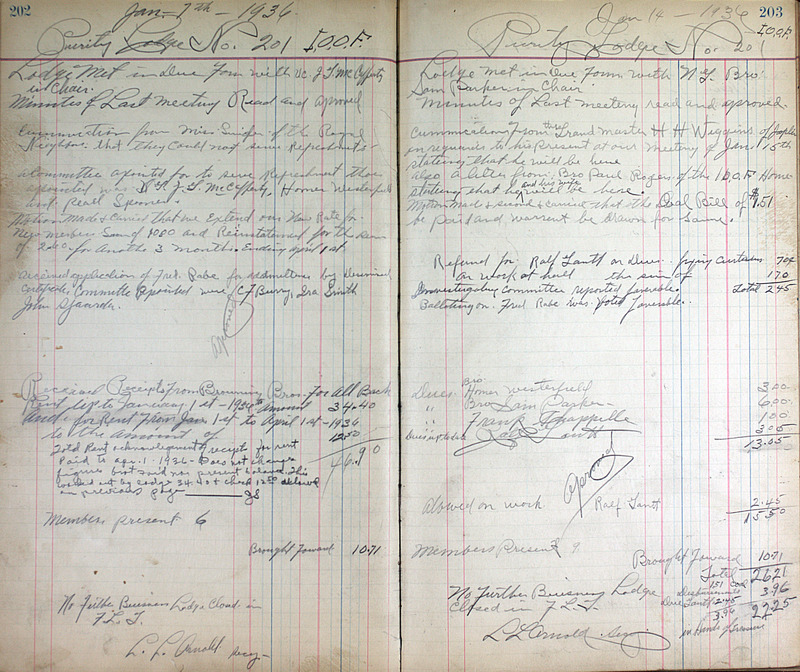 202
Jan. 7th - 1936
Purity Lodge No. 201 I.O.O.F.
Lodge Met in Due Form with Vc. J. T. McCafferty
in Chair.
Minutes of Last meeting Read and aproved
from Miss of the Royal
Neighbors that they could not serve Refreshments
a Committee apointed for to serve Refreshment those
apointed was J. T. McCafferty, Homer Westerfield
and Pearl
Motion Made & Carried that we Extend our New Rate for
New members Sum of 10.00 and Reinstatement for the sum
of 2.00 for Another 3 months. Ending april 1st.
application of Fred. Rabe for by
Committe Repointed were C. F. Burry, Ira Smith
John
aproved
Received Receipts From Browning Bros. For All Back
Rent up to January 1st - 1936 Amount 34.40
And for Rent From Jan 1st to April 1st - 1936
to the Amount of 12.50
46.90
Told Rent acknowledgment of receipt for rent
paid to apr. 1 1936 - Does not change
figures
by Lodge 34.40 + check 12.50
on previous page
Members present 6
Brought Foward 10.71
No Further Buisness Lodge Closd in
F. L. T.
L. L. Arnold Secy-
203
Jan 14 - 1936
I.O.O.F.
Purity Lodge No. 201
Lodge met in Due Form with N.G. Bro.
Sam Barker in Chair
Minutes of Last meeting read and aproved.
Cummunication from Grand master H H Wiggins of
in reguards to his Present at our Meeting of Jan. 15th
stating that he will be here
also a letter from Bro Paul Rogers of the I.O.O.F Home
stating that he and his wife will be here.
Motion made & second & carried that the Coal Bill of $1.51
be paid and warrent be drawn for same.
Refund for Ralf Tantt on Dues. curtains 70¢
on work at hall the sum of 1.70
committee reported favorable. Total 2.45
Balloting on Fred Rabe was Voted Favorable.
Dues: Bro. Homer Westerfield 3.00
" Bro Sam Barker 6.00
" Frank Chappelle 1.00
3.05
13.05
aproved
Alowed on work Ralf Tantt 2.45
15.50
Members Present 9
Brought Foward 10.71
Total 26.21
No Further Buisness Lodge
Closed in F.L.T.
1.51 Coal
2.45
3.96
3.96
22.25
in Hands of Treasurer
L L Arnold Secy.